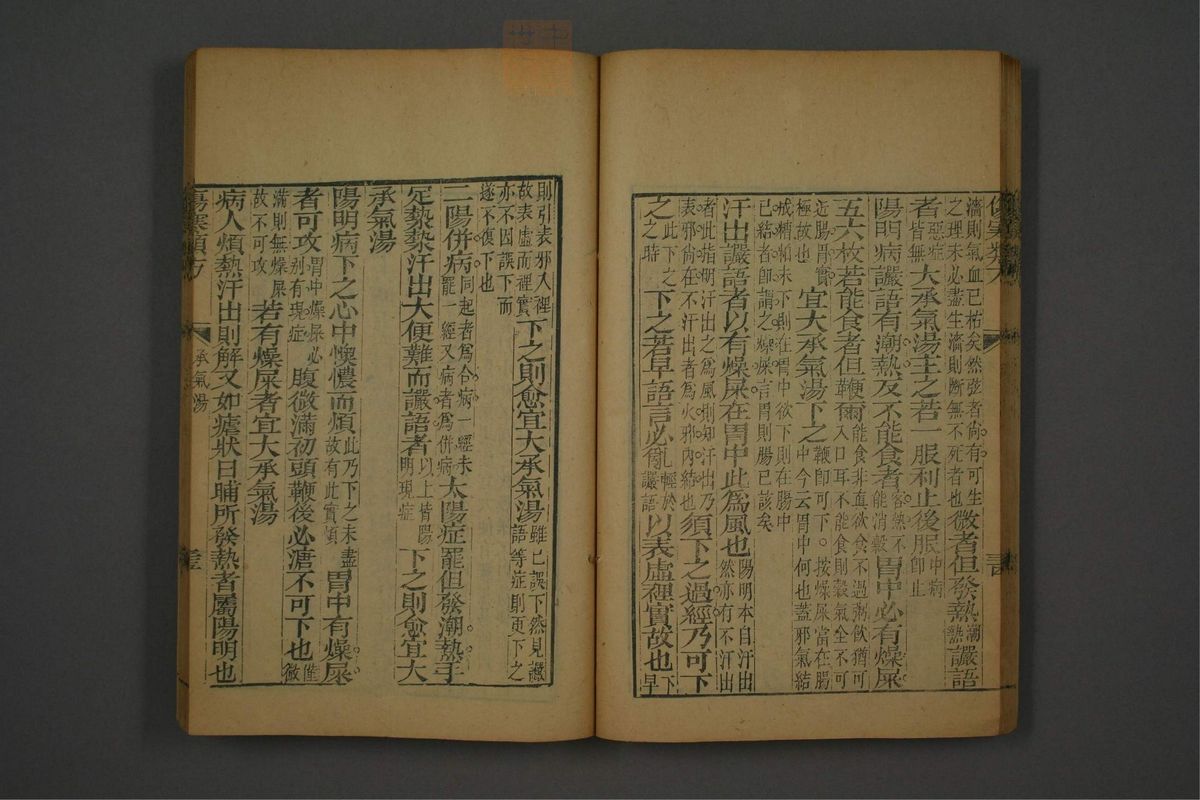 濇則氣血已枯矣然弦者尚有可生
之理未必盡生濇則斷無不死者也微者但發熱潮熱讝語
者惡症皆無大承氣湯主之若一服利止後服中病即止
陽明病讝語有潮熱反不能食者客熱不能消穀胃中必有燥屎
五六枚若能食者但鞕爾能食非真欲食不過粥飲猶可入口耳不能食則穀氣全不可
近腸胃實極故也宜大承氣湯下之鞕即可下。按燥屎當在腸中今云胃中何也蓋邪氣結
成糟粕未下則在胃中欲下則在腸中
已結者即謂之燥燥言胃則腸已該矣
汗出讝語者以有燥屎在胃中此為風也陽明本自汗出然亦有不汗出
者此指明汗出之為風則知汗出乃表邪尚在不汗出者為火邪內結也須下之過經乃可下
之此下之之時下之若早語言必亂輕於讝語以表虛裡實故也下早
則引表邪入裡
故表虛而裡實
亦不因誤下而
遂不復下也
下之則愈宜大承氣湯雖已誤下然見讝語等症則更下之
二陽併病同起者為合病一經未罷一經又病者為併病太陽症罷但發潮熱手
足漐漐汗出大便難而讝語者以上皆陽明現症下之則愈宜大
承氣湯
陽明病下之心中懊憹而煩此乃下之未盡故有此實煩胃中有燥屎
者可攻胃中燥屎必別有現症腹微滿初頭鞕後必溏不可下也惟微
滿則無燥屎故不可攻若有燥屎者宜大承氣湯
病人煩熱汗出則解又如瘧狀日晡所發熱者屬陽明也
傷寒類方 承氣湯